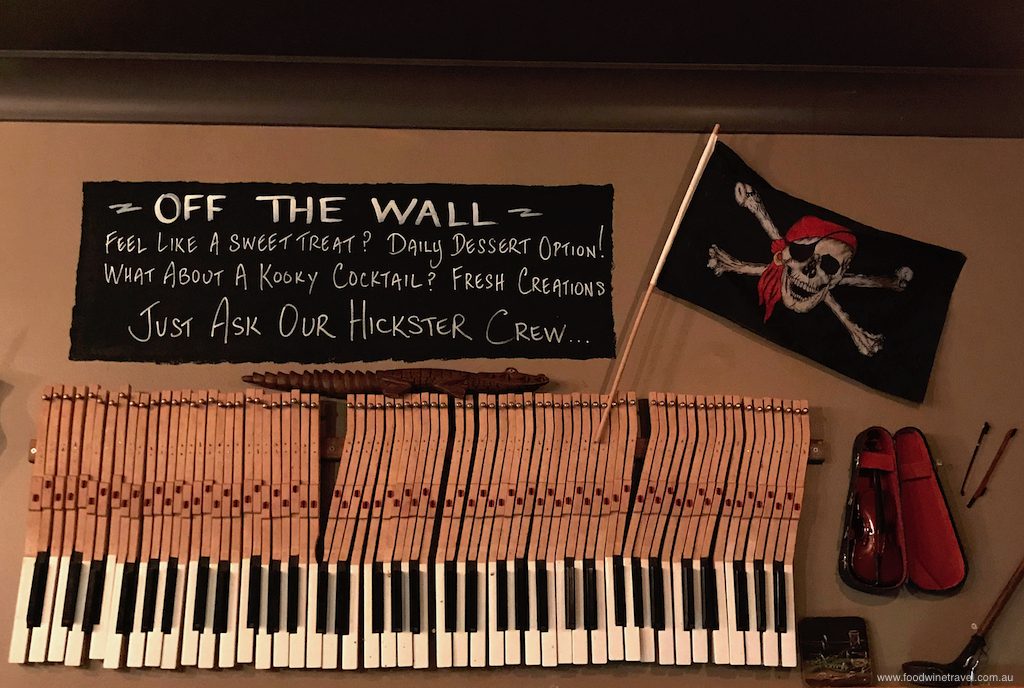 ~ OFF THE WALL ~
FEEL LIKE A SWEET TREAT? DAILY DESSERT OPTION!
WHAT ABOUT A KOOKY COCKTAIL? FRESH CREATIONS
JUST ASK OUR HICKSTER CREW...
www.foodwinetravel.com.au